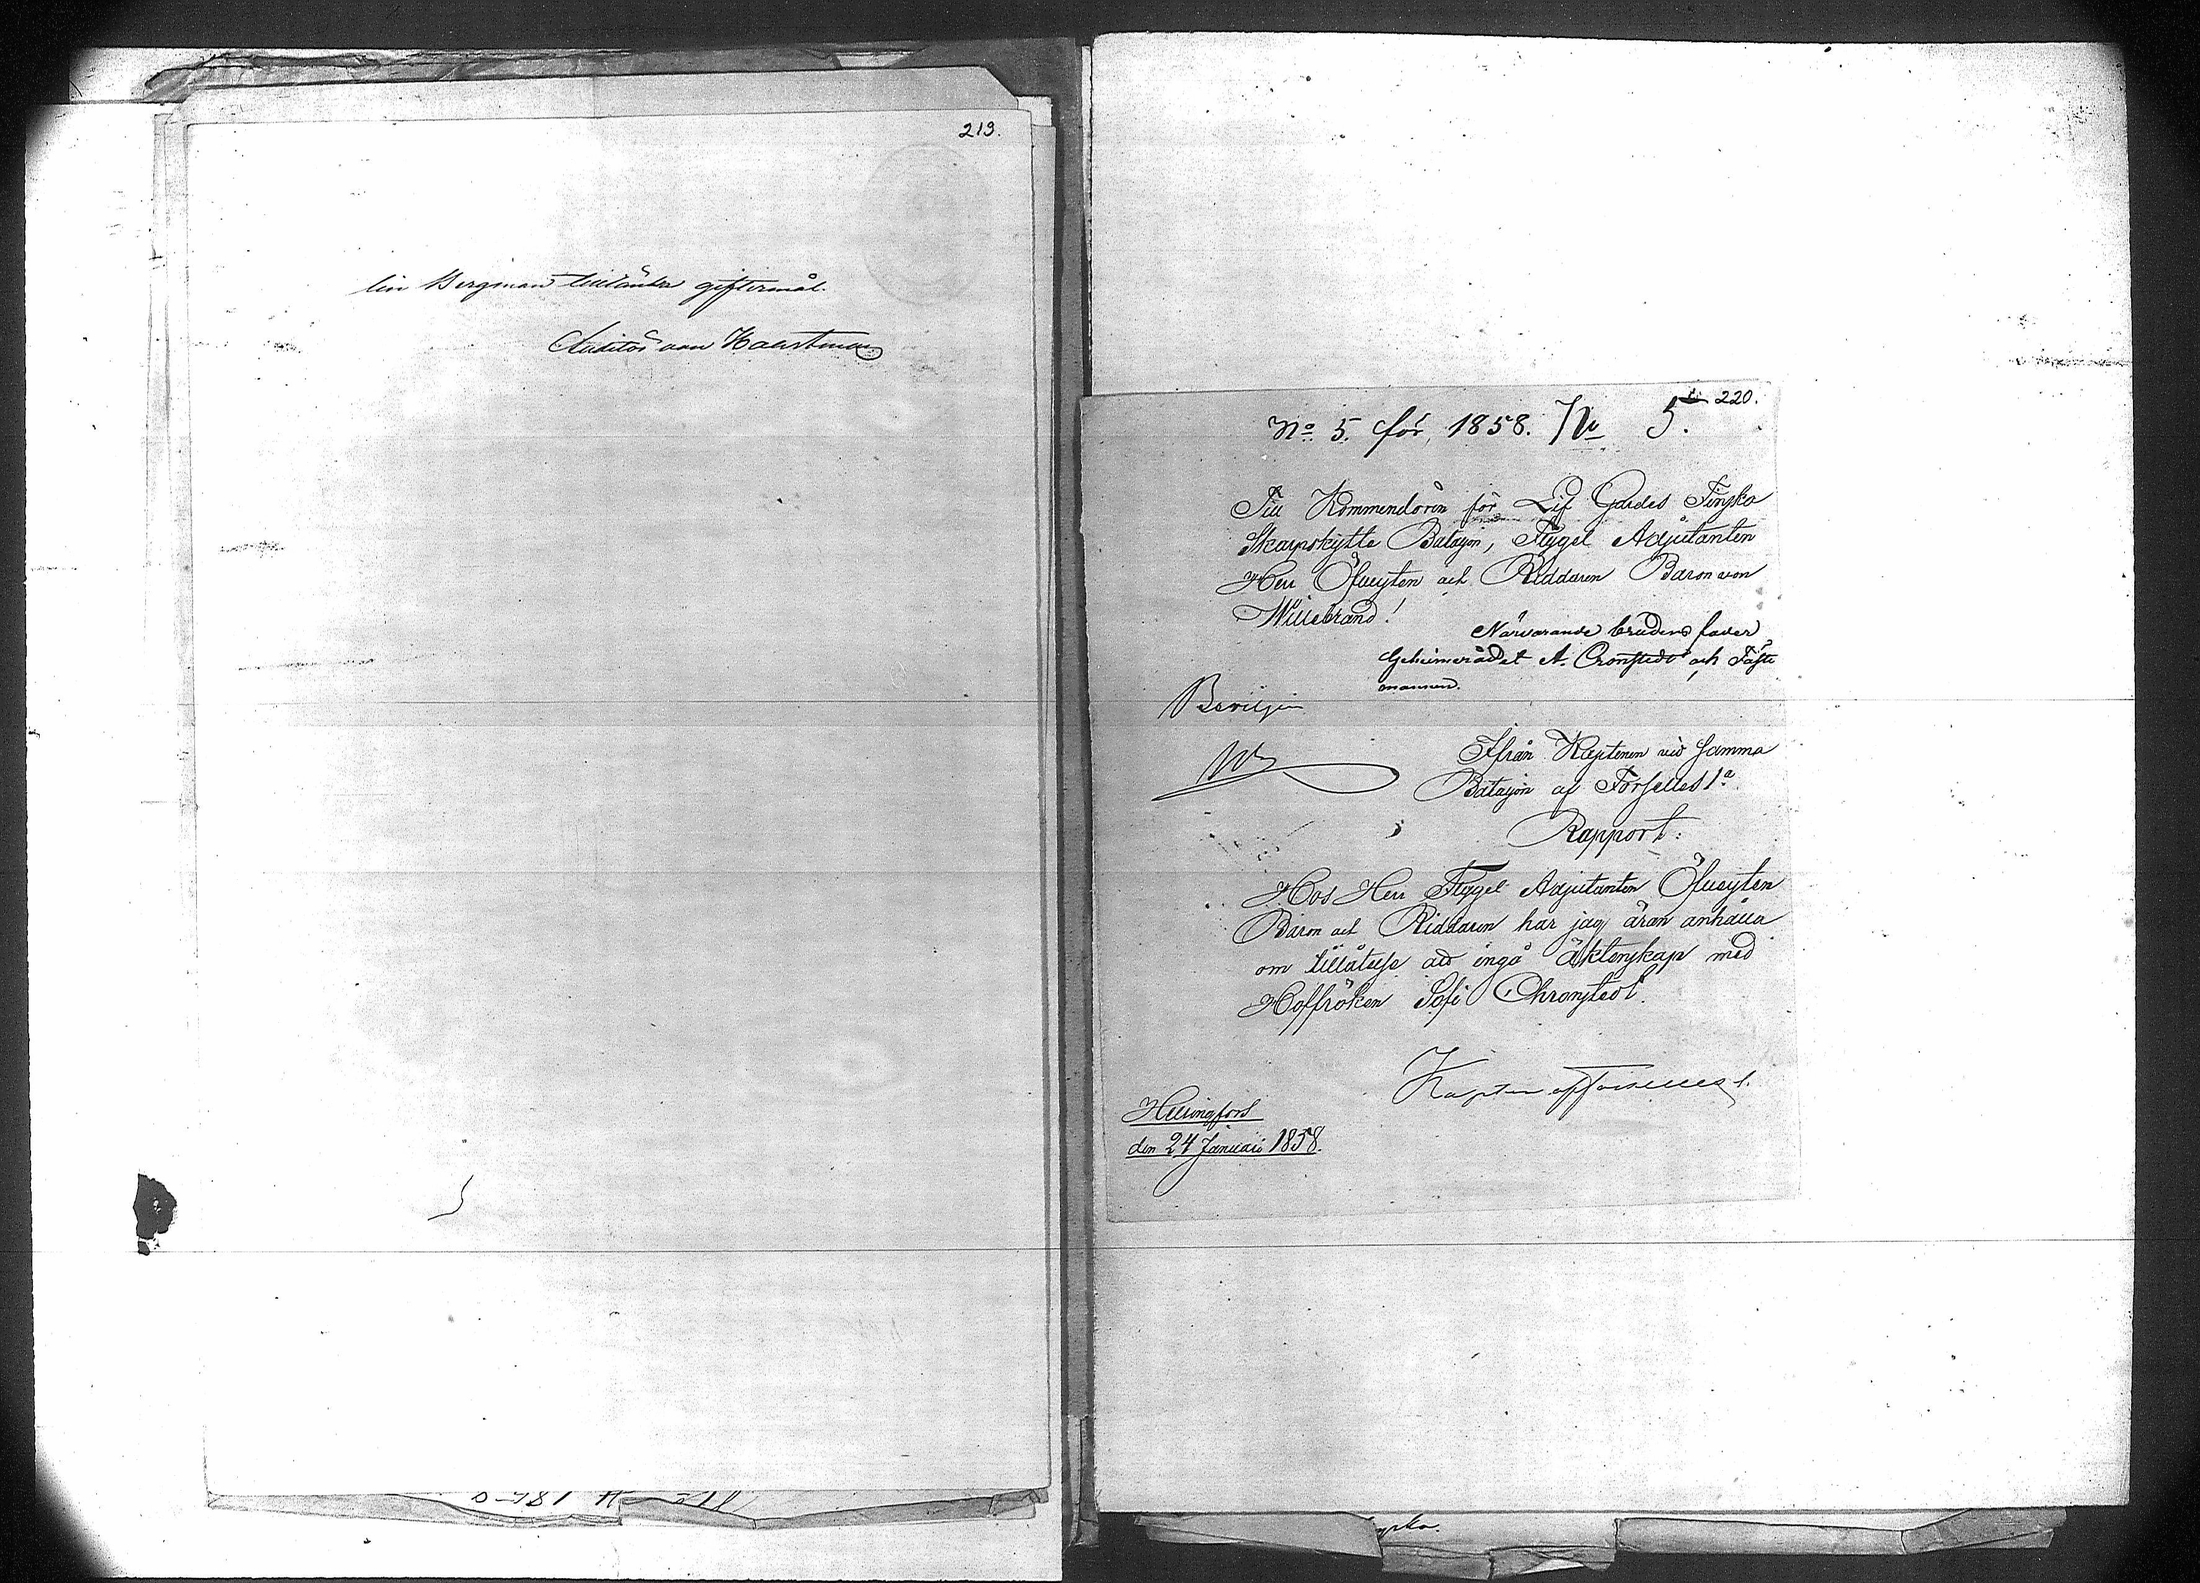 219.
lin Bergman tillämnade giftermål.
Auditör von Haartman
220.
No 5. för 1858. No 5.
Till Kommendören för Lif Gardes Finska
Skarpskytte Bataljon, Flygel Adjutanten
Herr Öfversten och Riddaren Baron von
Willebrand!
Närvarande brudens fader
Geheimerådet A. Cronstedt och Fäste
mannen.
Beviljas
W
Ifrån Kaptenen vid samma
Bataljon af Forselles 1a
Rapport:
Hos Herr Flygel Adjutanten Öfversten
Baron och Riddaren har jag äran anhålla
om tillåtelse att ingå äktenskap med
Hoffröken Sofi Chronstedt.
Kapten af Forselles 1.
Helsingfors
den 24 Januari 1858.